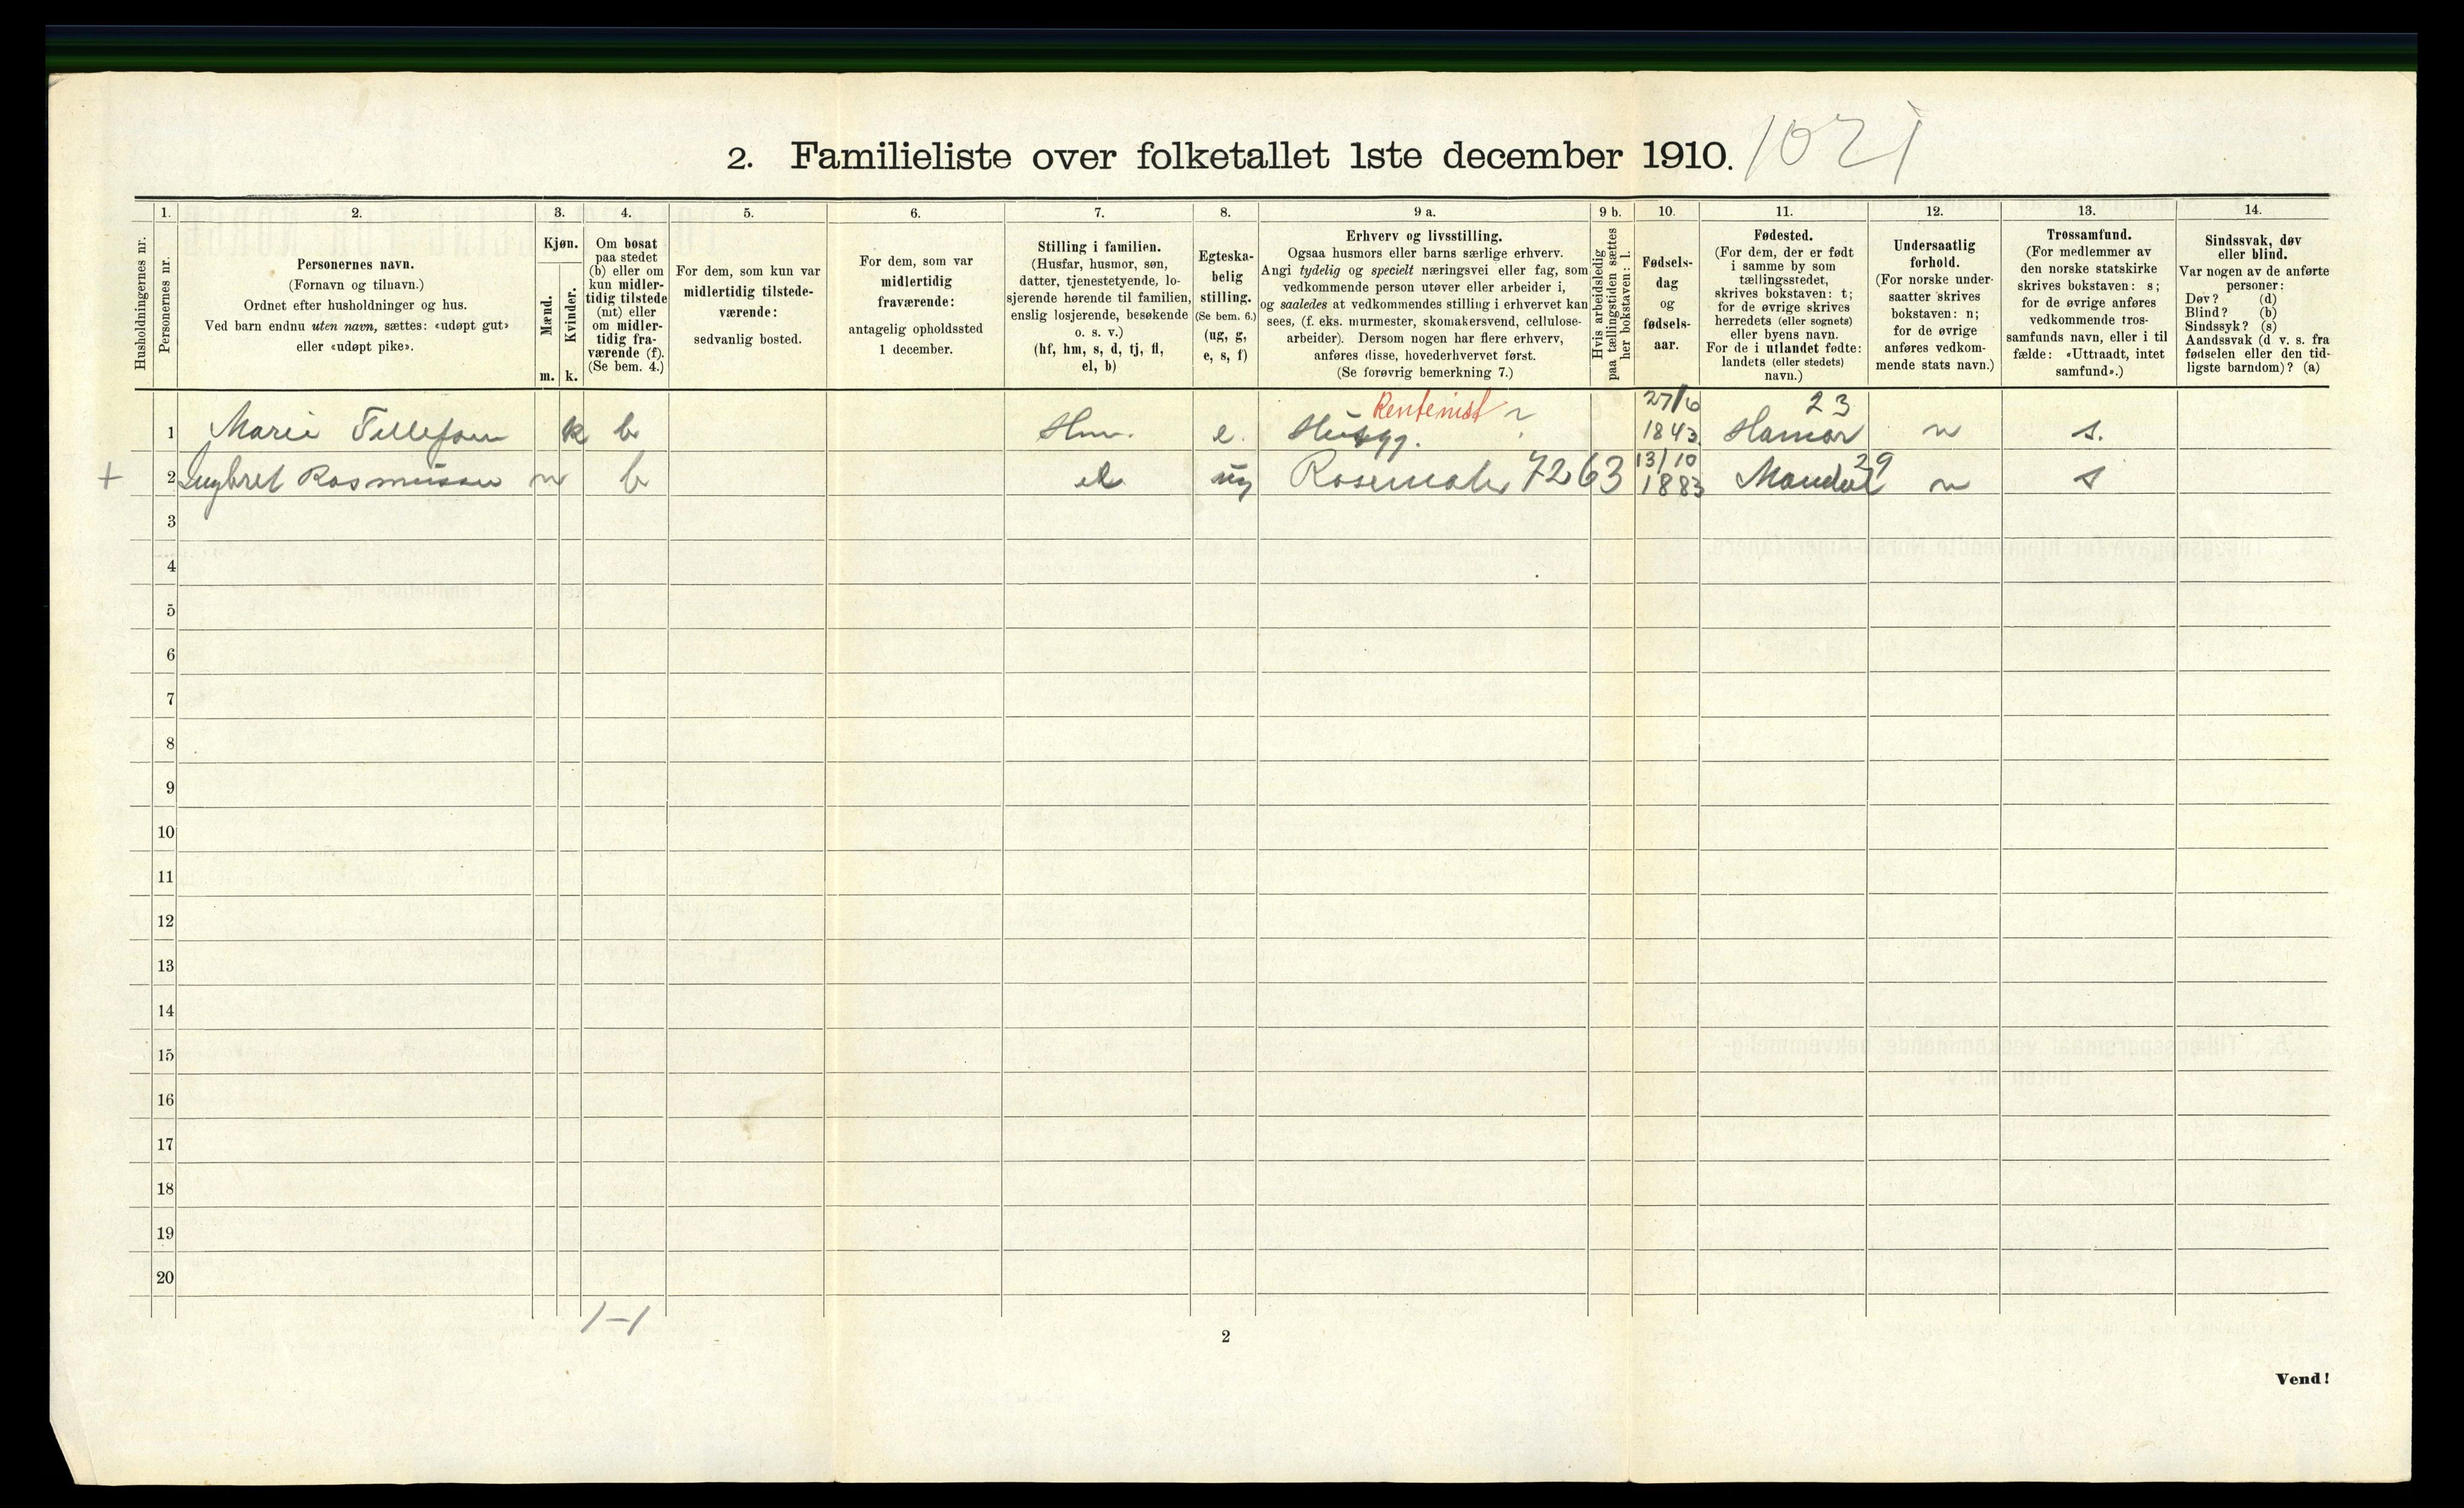 2. Familieliste over folketallet 1ste december 1910.
Husholdningernes nr.
1.
Personernes nr.
2.
Personernes navn.
(Fornavn og tilnavn.)
Ordnet efter husholdninger og hus.
Ved barn endnu uten navn, sættes: «udøpt gut»
eller «udøpt pike».
3.
Kjøn.
Mænd.
Kvinder.
m. k.
4.
Om bosat
paa stedet
(b) eller om
kun midler-
tidig tilstede
(mt) eller
om midler-
tidig fra-
værende (f).
(Se bem. 4.)
5.
For dem, som kun var
midlertidig tilstede-
værende:
sedvanlig bosted.
6.
For dem, som var
midlertidig
fraværende:
antagelig opholdssted
1 december.
7.
Stilling i familien.
(Husfar, husmor, søn,
datter, tjenestetyende, lo-
sjerende hørende til familien,
enslig losjerende, besøkende
o. s. v.)
(hf, hm, s, d, tj, fl,
el, b)
8.
Egteska-
belig
stilling.
(Se bem. 6.)
(ug, g,
e, s, f)
9 a.
Erhverv og livsstilling.
Ogsaa husmors eller barns særlige erhverv.
Angi tydelig og specielt næringsvei eller fag, som
vedkommende person utøver eller arbeider i,
og saaledes at vedkommendes stilling i erhvervet kan
sees, (f. eks. murmester, skomakersvend, cellulose-
arbeider). Dersom nogen har flere erhverv,
anføres disse, hovederhvervet først.
(Se forøvrig bemerkning 7.)
9 b.
Hvis arbeidsledig
paa tællingstiden sættes
her bokstaven: l.
10.
Fødsels-
dag
og
fødsels-
aar.
11.
Fødested.
(For dem, der er født
i samme by som
tællingsstedet,
skrives bokstaven: t;
for de øvrige skrives
herredets (eller sognets)
eller byens navn.
For de i utlandet fødte:
landets (eller stedets)
navn.)
12.
Undersaatlig
forhold.
(For norske under-
saatter skrives
bokstaven: n;
for de øvrige
anføres vedkom-
mende stats navn.)
13.
Trossamfund.
(For medlemmer av
den norske statskirke
skrives bokstaven: s;
for de øvrige anføres
vedkommende tros-
samfunds navn, eller i til
fælde: «Uttraadt, intet
samfund».)
14.
Sindssvak, døv
eller blind.
Var nogen av de anførte
personer:
Døv? (d)
Blind? (b)
Sindssyk? (s)
Aandssvak (d v. s. fra
fødselen eller den tid-
ligste barndom)? (a)
Rentenist 27/6 23
1 Marie Tellefsen k b Hm. e. Husgj. ? 1843. Hamar n s.
13/10 29
+ 2 Ingbret Rasmussen m b el ug Rosemaler 7263 1883 Mandal n s
3
4
5
6
7
8
9
10
11
12
13
14
15
16
17
18
19
20
1-1
2
Vend!